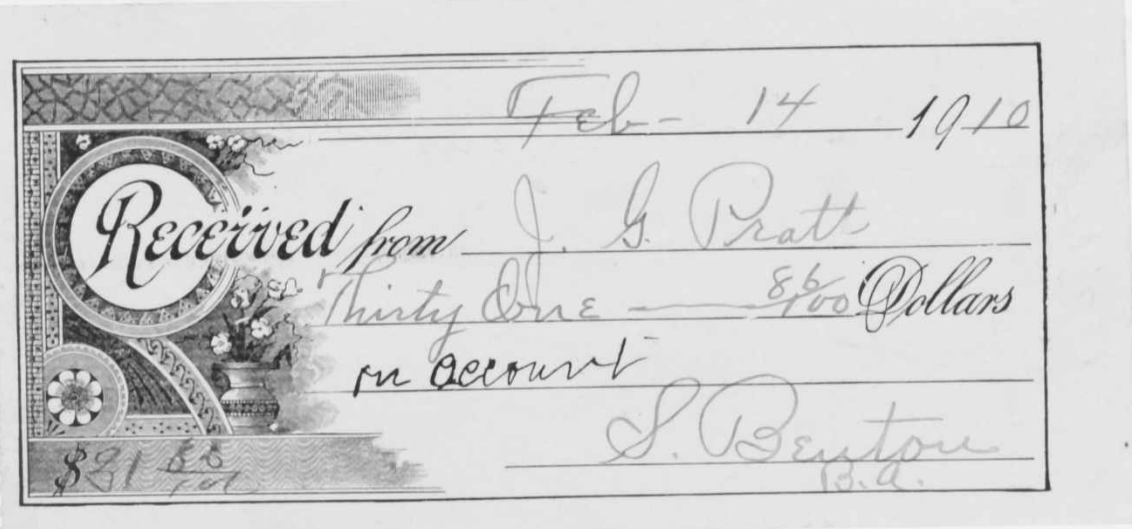 Feb - 14 1910
Received from J. G. Pratt
Thirty One — 86/100 Dollars
on account
S. Benton
B.A.
$31 86/100